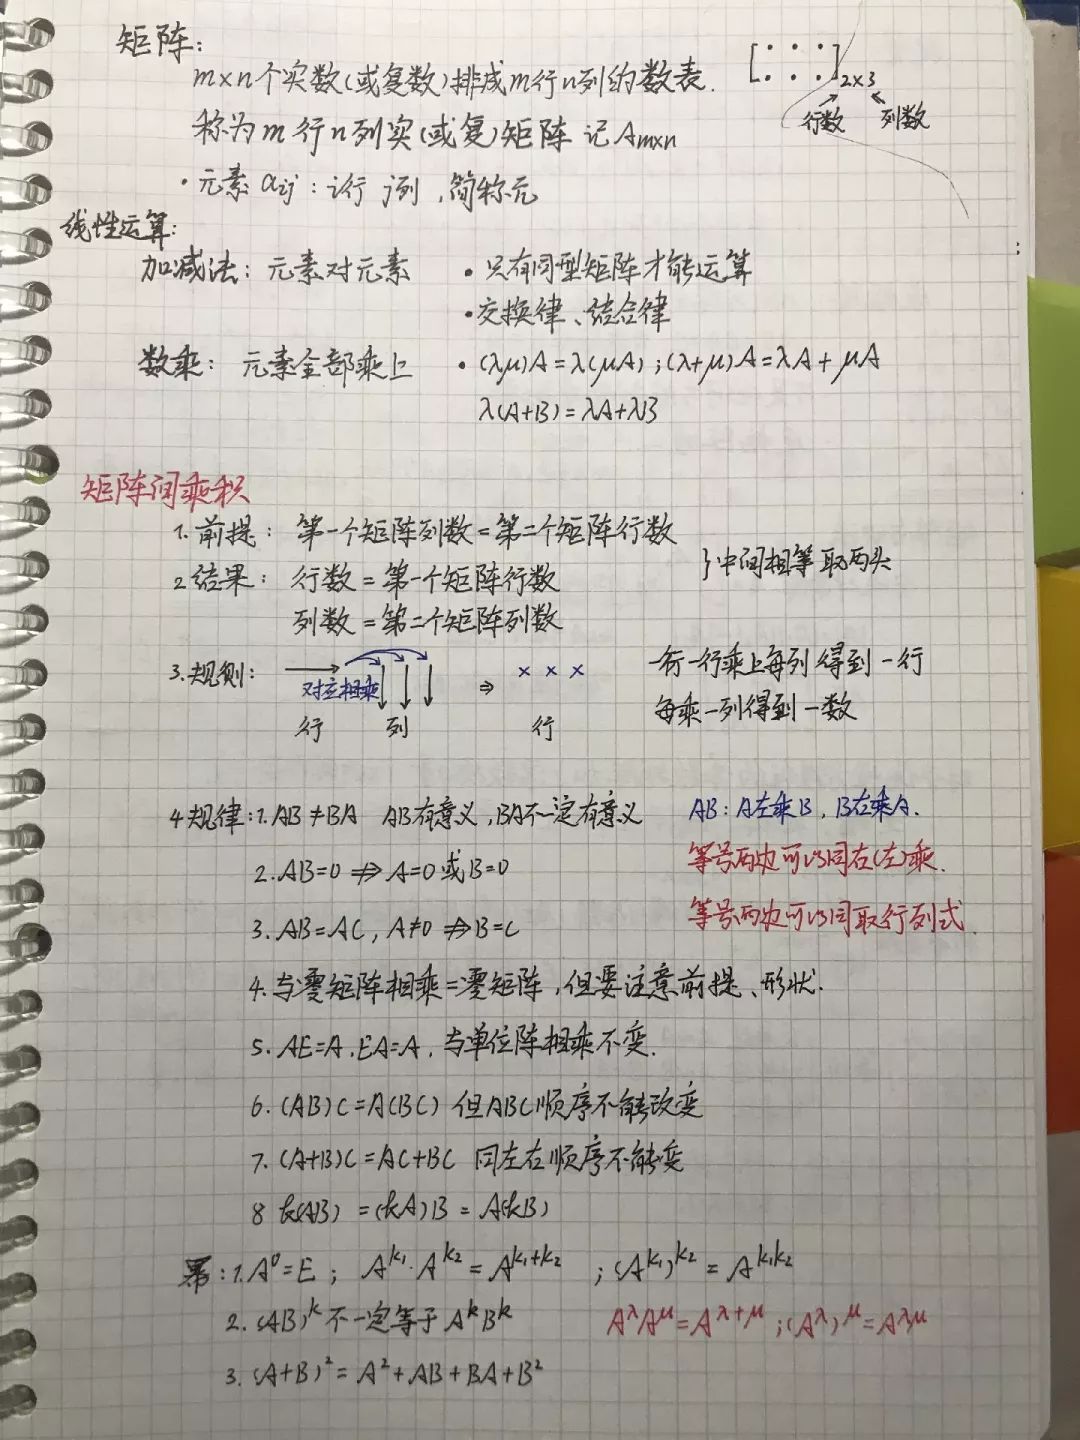 矩阵:
m×n个实数(或复数)排成m行n列的数表.
[: : :]2×3
行数 列数
称为m行n列实(或复)矩阵 记Am×n
·元素aij:i行 j列,简称元
线性运算:
加减法:元素对元素 ·只有同型矩阵才能运算
·交换律、结合律
数乘:元素全部乘上 ·(λμ)A=λ(μA);(λ+μ)A=λA+μA
λ(A+B)=λA+λB
矩阵间乘积
1.前提:第一个矩阵列数=第二个矩阵行数
}中间相等取两头
2结果:行数=第一个矩阵行数
列数=第二个矩阵列数
3.规则: 对应相乘 ⇒ × × × 一行一行乘上每列得到一行
行 列 行 每乘一列得到一数
4规律:1.AB≠BA AB有意义,BA不一定有意义 AB:A左乘B,B右乘A.
2.AB=0⇏A=0或B=0 等号两边可以同右(左)乘.
3.AB=AC,A≠0⇏B=C 等号两边可以同取行列式.
4.与零矩阵相乘=零矩阵,但要注意前提、形状.
5.AE=A.EA=A.与单位阵相乘不变.
6.(AB)C=A(BC) 但ABC顺序不能改变
7.(A+B)C=AC+BC 同左右顺序不能变
8 k(AB)=(kA)B=A(kB)
幂:1.A⁰=E; A^k₁·A^k₂=A^k₁+k₂ ;(A^k₁)^k₂=A^k₁k₂
2.(AB)^k不一定等于A^kB^k A^λA^μ=A^λ+μ;(A^λ)^μ=A^λμ
3.(A+B)²=A²+AB+BA+B²